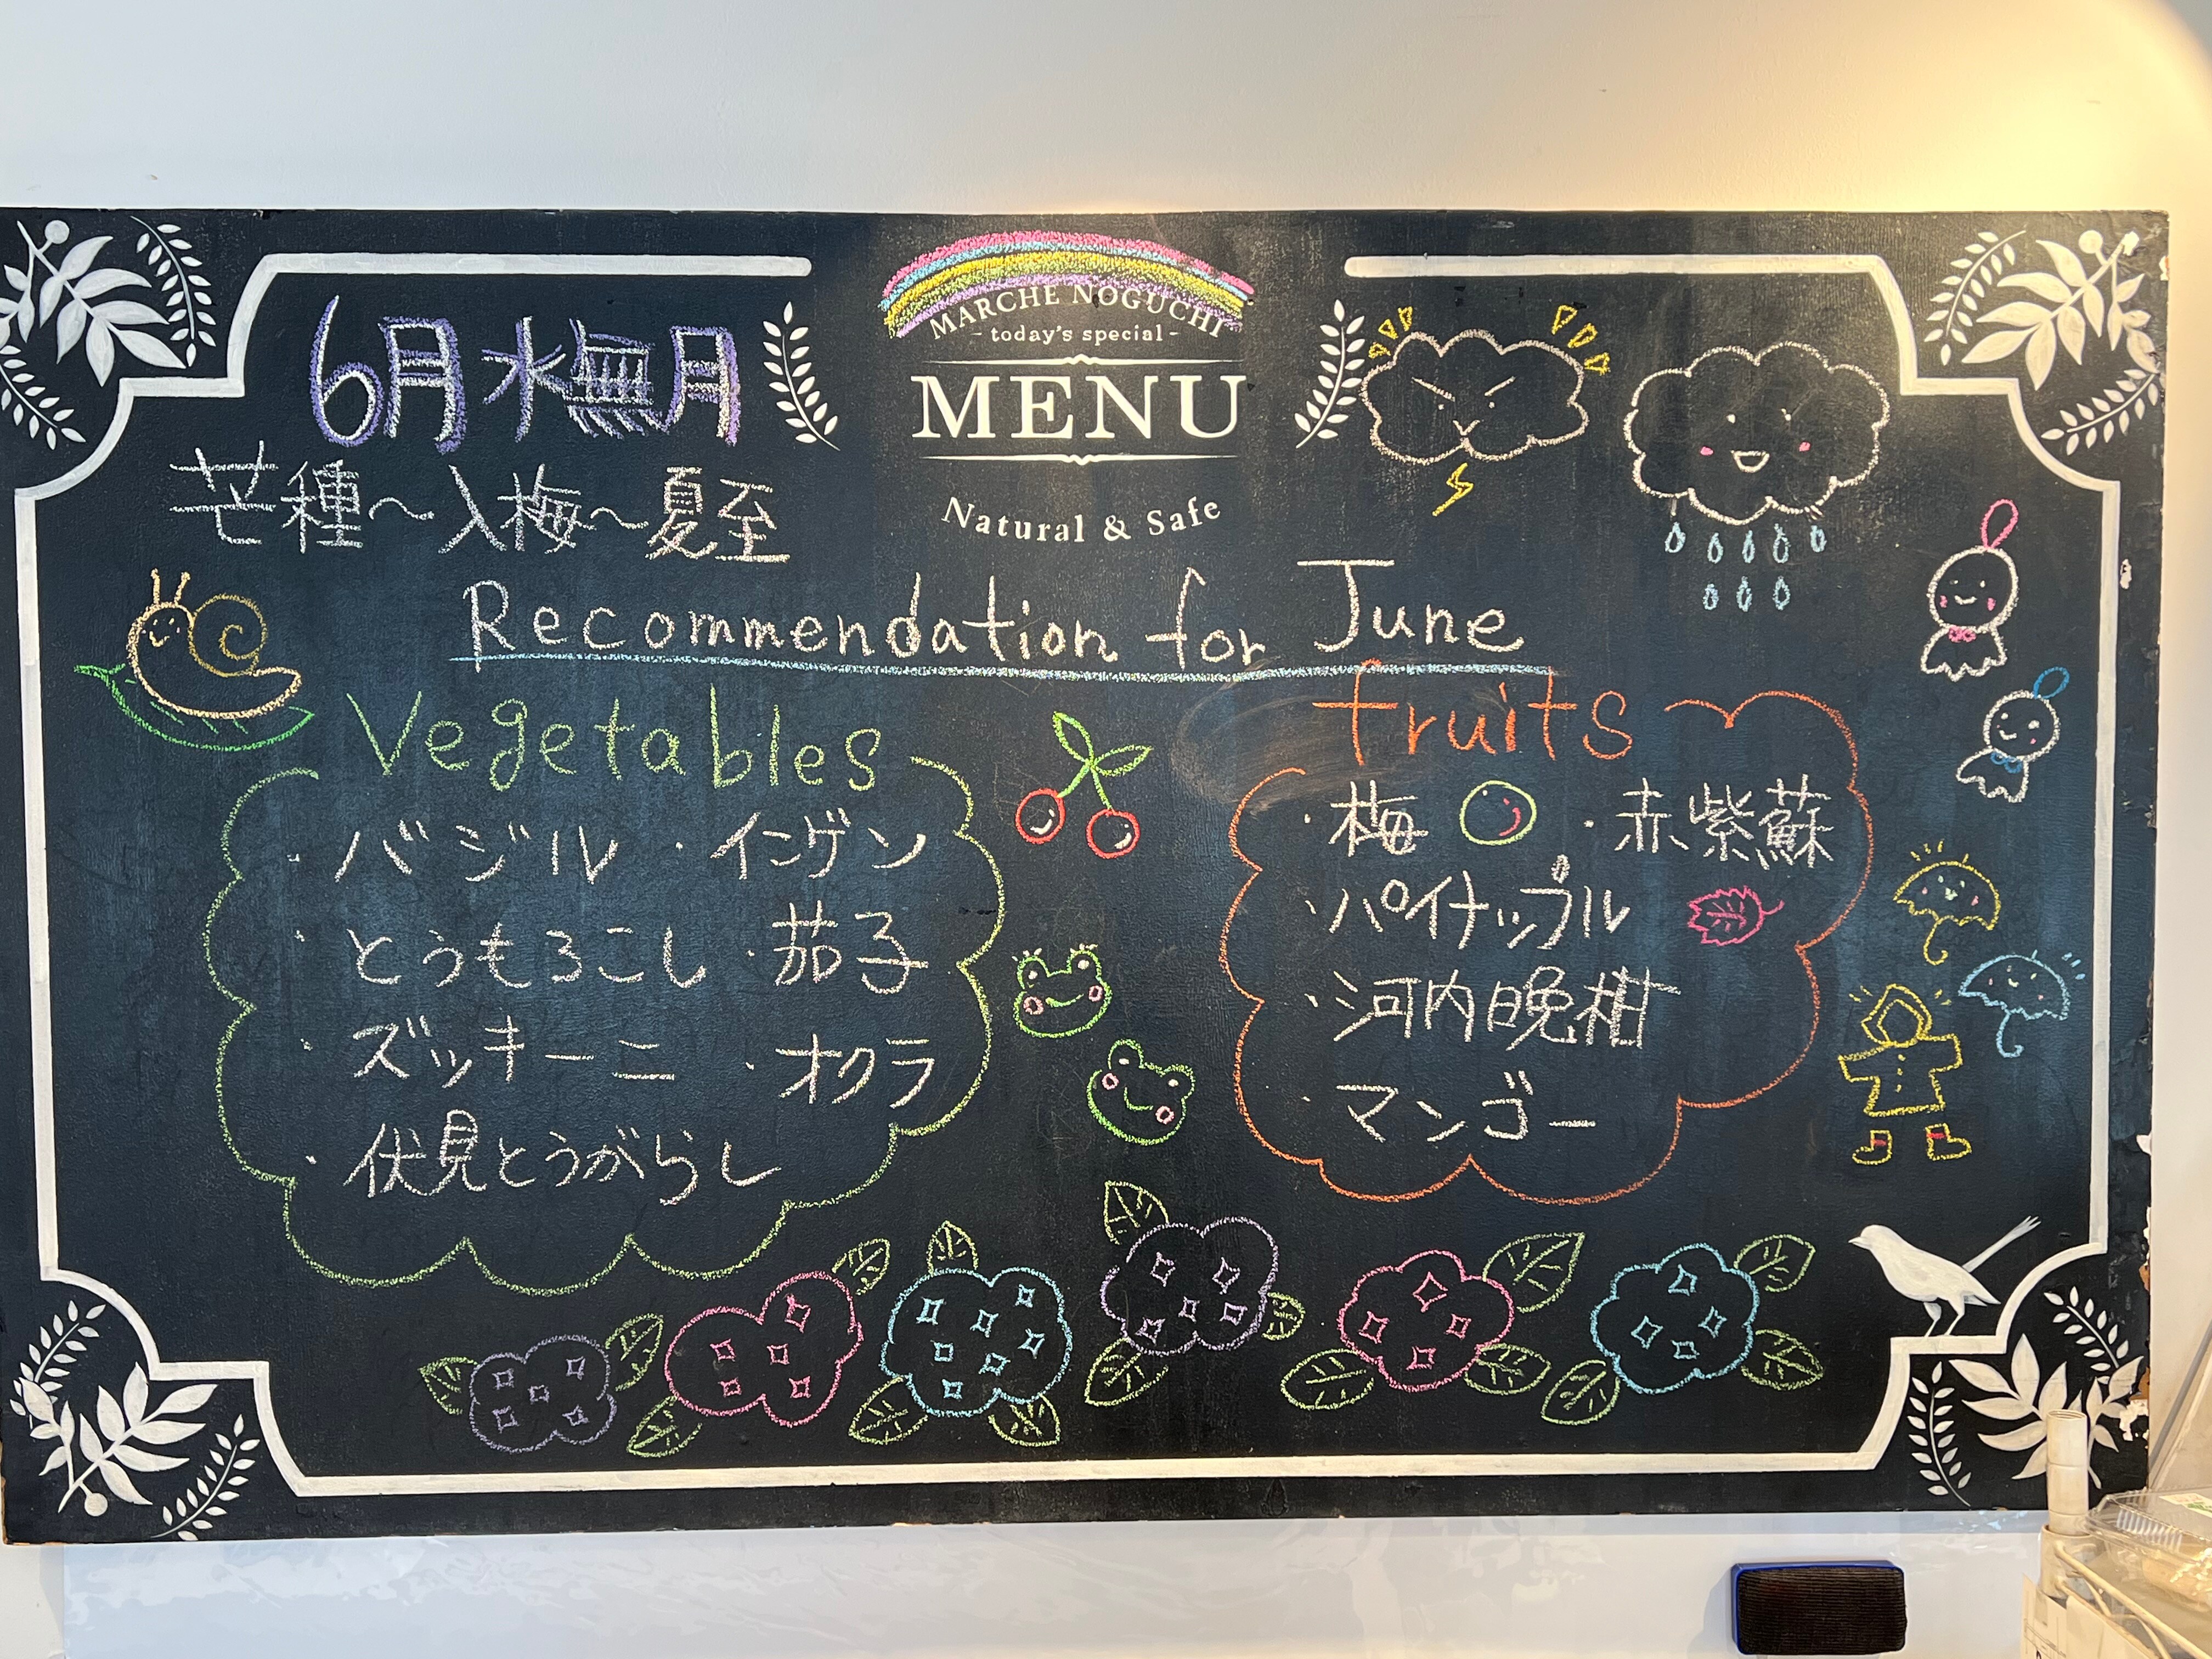 MARCHE NOGUCHI
- today's special -
MENU
Natural & Safe
6月 水無月
芒種〜入梅〜夏至
Recommendation for June
Vegetables
・バジル ・インゲン
・とうもろこし ・茄子
・ズッキーニ ・オクラ
・伏見とうがらし
fruits
・梅 ・赤紫蘇
・パイナップル
・河内晩柑
・マンゴー